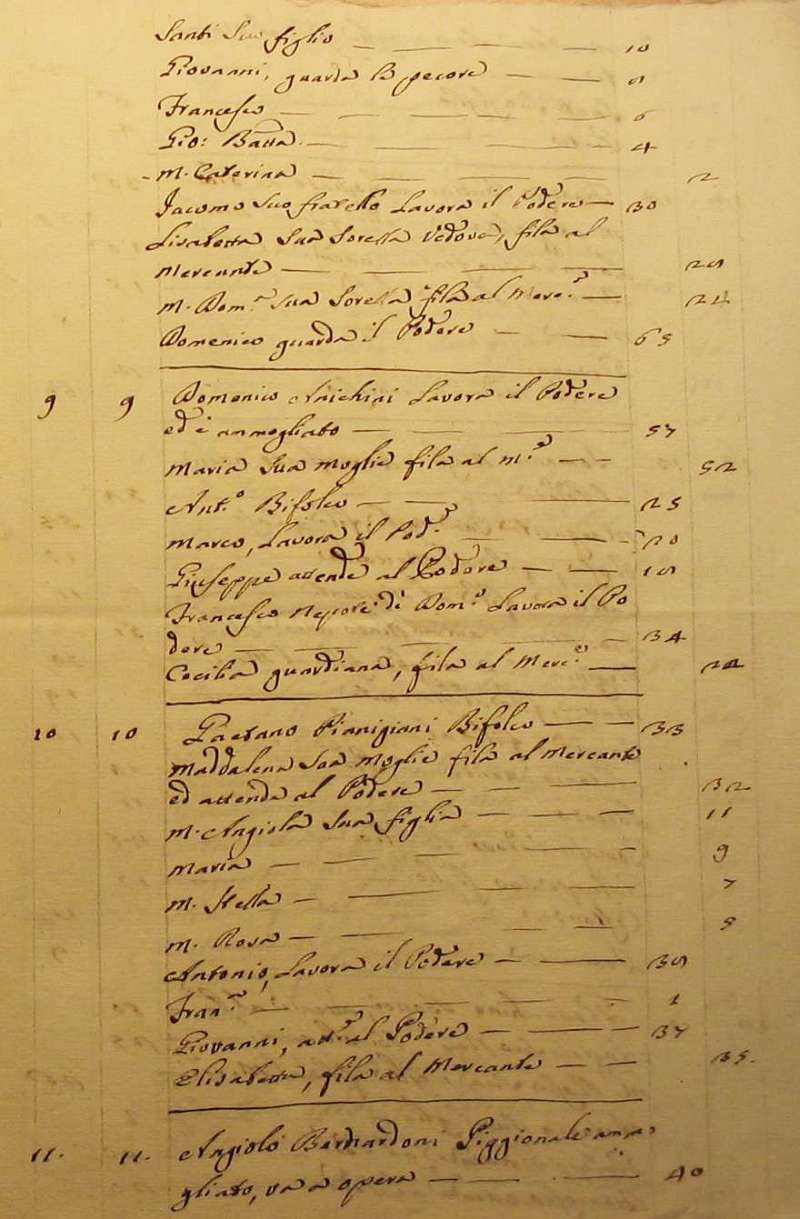 Santi Suo figlio — 10
Giovanni, guarda le pecore — 8
Francesco — 6
Gio: Batta. — 4
M. Caterina — 2
Iacomo suo fratello Lavora il Podere — 30
Lisabetta Sua Sorella Vedova, fila al
Mercante — 28
M. Dom.ca sua Sorella fila al Merc.e — 24
Domenico guarda il Podere — 65
9 9 Domenico Naichini Lavora il Podere
ed è ammogliato — 57
Maria Sua Moglie fila al M.e — 52
Ant.o Bifolco — 25
Marco, Lavora il Pod.e — 20
Giuseppe attende al Podere — 18
Francesco Nepote di Dom.o Lavora il Po
dere — 34
Cecilia guardiana, fila al Merc.e — 22
10 10 Gaetano Pianigiani Bifolco — 33
Maddalena Sua Moglie fila al Mercante
ed attende al Podere — 32
M. Angiola Sua figlia — 11
Maria — 9
M. Stella — 7
M. Rosa — 5
Antonio, Lavora il Podere — 38
Fran.co — 1
Giovanni, att.e al Podere — 37
Elisabetta, fila al Mercante — 35.
11. 11. Angiolo Bernardoni Piggionale amo
gliato, va a opera — 40